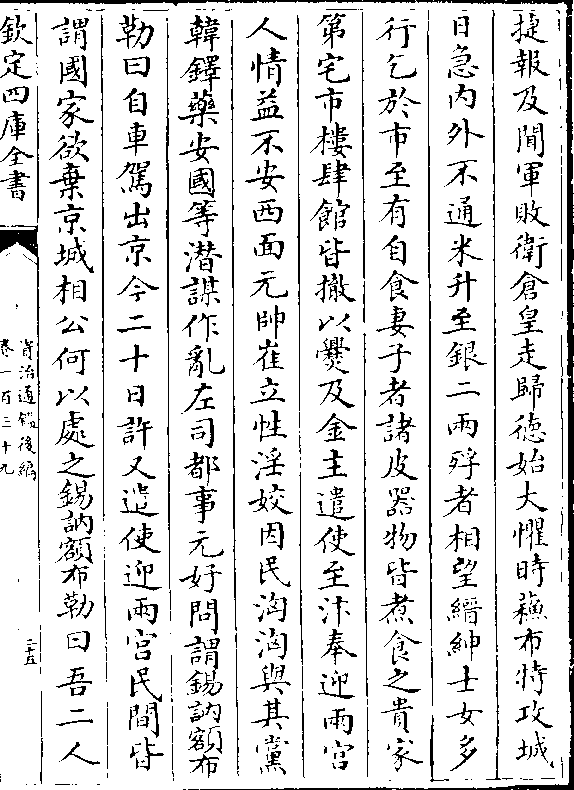 捷報及聞軍敗衛倉皇走歸德始大懼時蘓布特攻城
日急内外不通米升至銀二兩殍者相望縉紳士女多
行乞於市至有自食妻子者諸皮器物皆煮食之貴家
第宅市樓肆館皆撤以爨及金主遣使至汴奉迎兩宫
人情益不安西面元帥崔立性淫姣因民洶洶與其黨
韓鐸藥安國等潛謀作亂左司都事元好問謂錫訥額布
勒曰自車駕出京今二十日許又遣使迎兩宫民間皆
謂國家欲棄京城相公何以處之錫訥額布勒曰吾二人
欽定四庫全書
資治通鑑後編
卷一百三十九
二十五